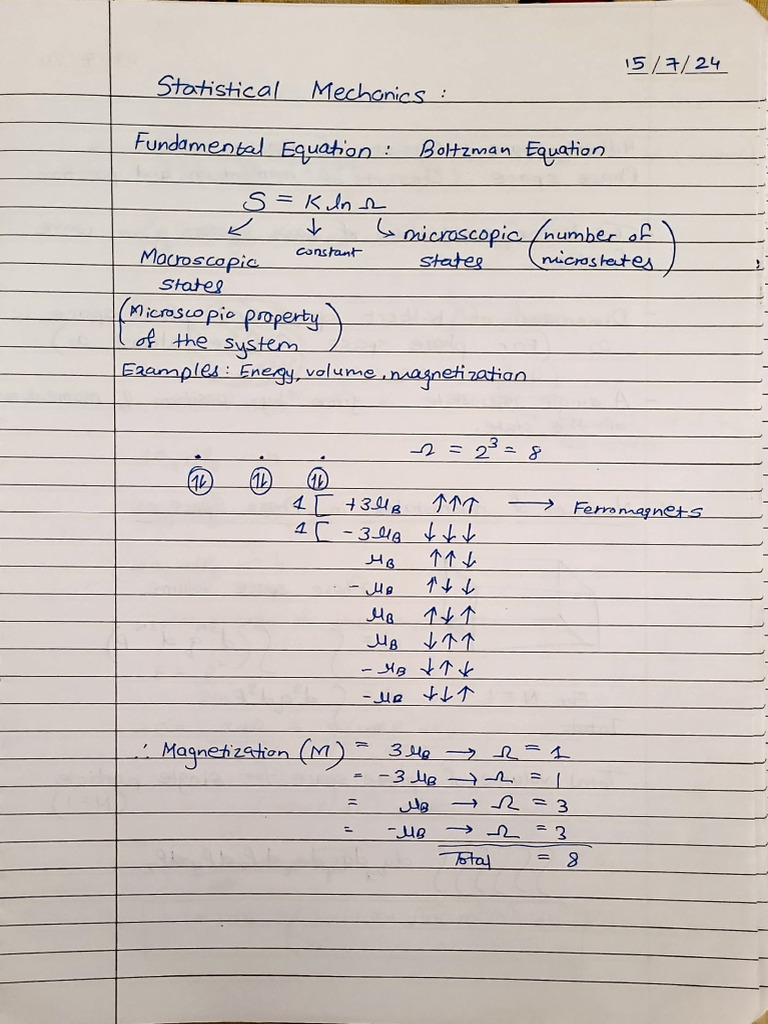 15/7/24
Statistical Mechanics :
Fundamental Equation : Boltzman Equation
S = K ln Ω
↙ ↓ ↳ microscopic (number of
Macroscopic constant states microstates)
states
(Microscopic property
of the system)
Examples: Energy, volume, magnetization
Ω = 2³ = 8
⥮ ⥮ ⥮
1 [ +3μB ↑↑↑ ⟶ Ferromagnets
1 [ -3μB ↓↓↓
μB ↑↑↓
-μB ↑↓↓
μB ↑↓↑
μB ↓↑↑
-μB ↓↑↓
-μB ↓↓↑
∴ Magnetization (M) = 3μB → Ω = 1
= -3μB → Ω = 1
= μB → Ω = 3
= -μB → Ω = 3
Total = 8